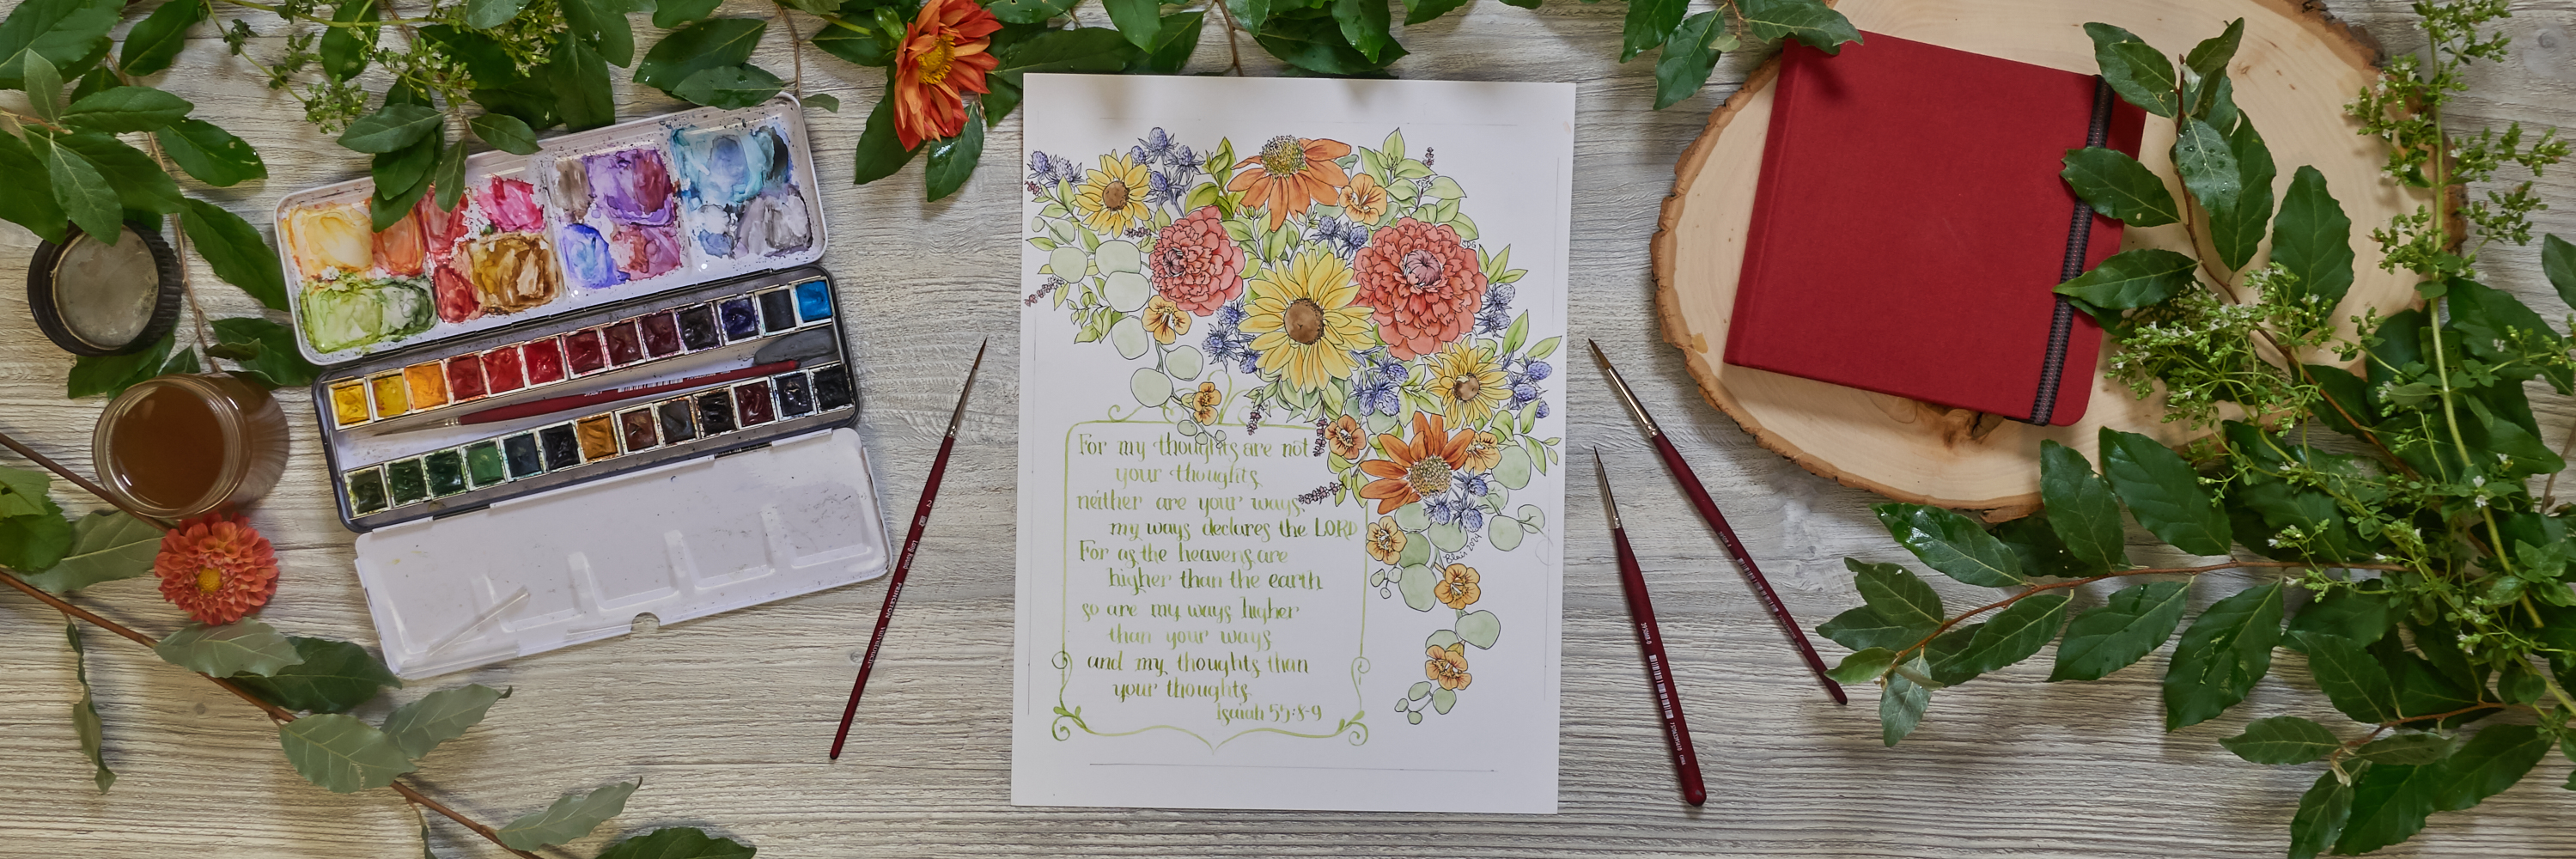 For my thoughts are not
your thoughts
neither are your ways,
my ways declares the LORD
For as the heavens are
higher than the earth
so are my ways higher
than your ways
and my thoughts than
your thoughts
Isaiah 55:8-9
Blair 2024